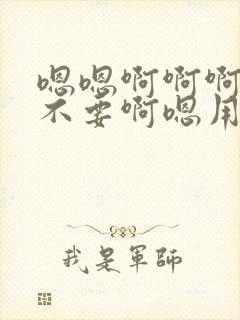 嗯嗯啊啊啊
不要啊嗯用
我是军师